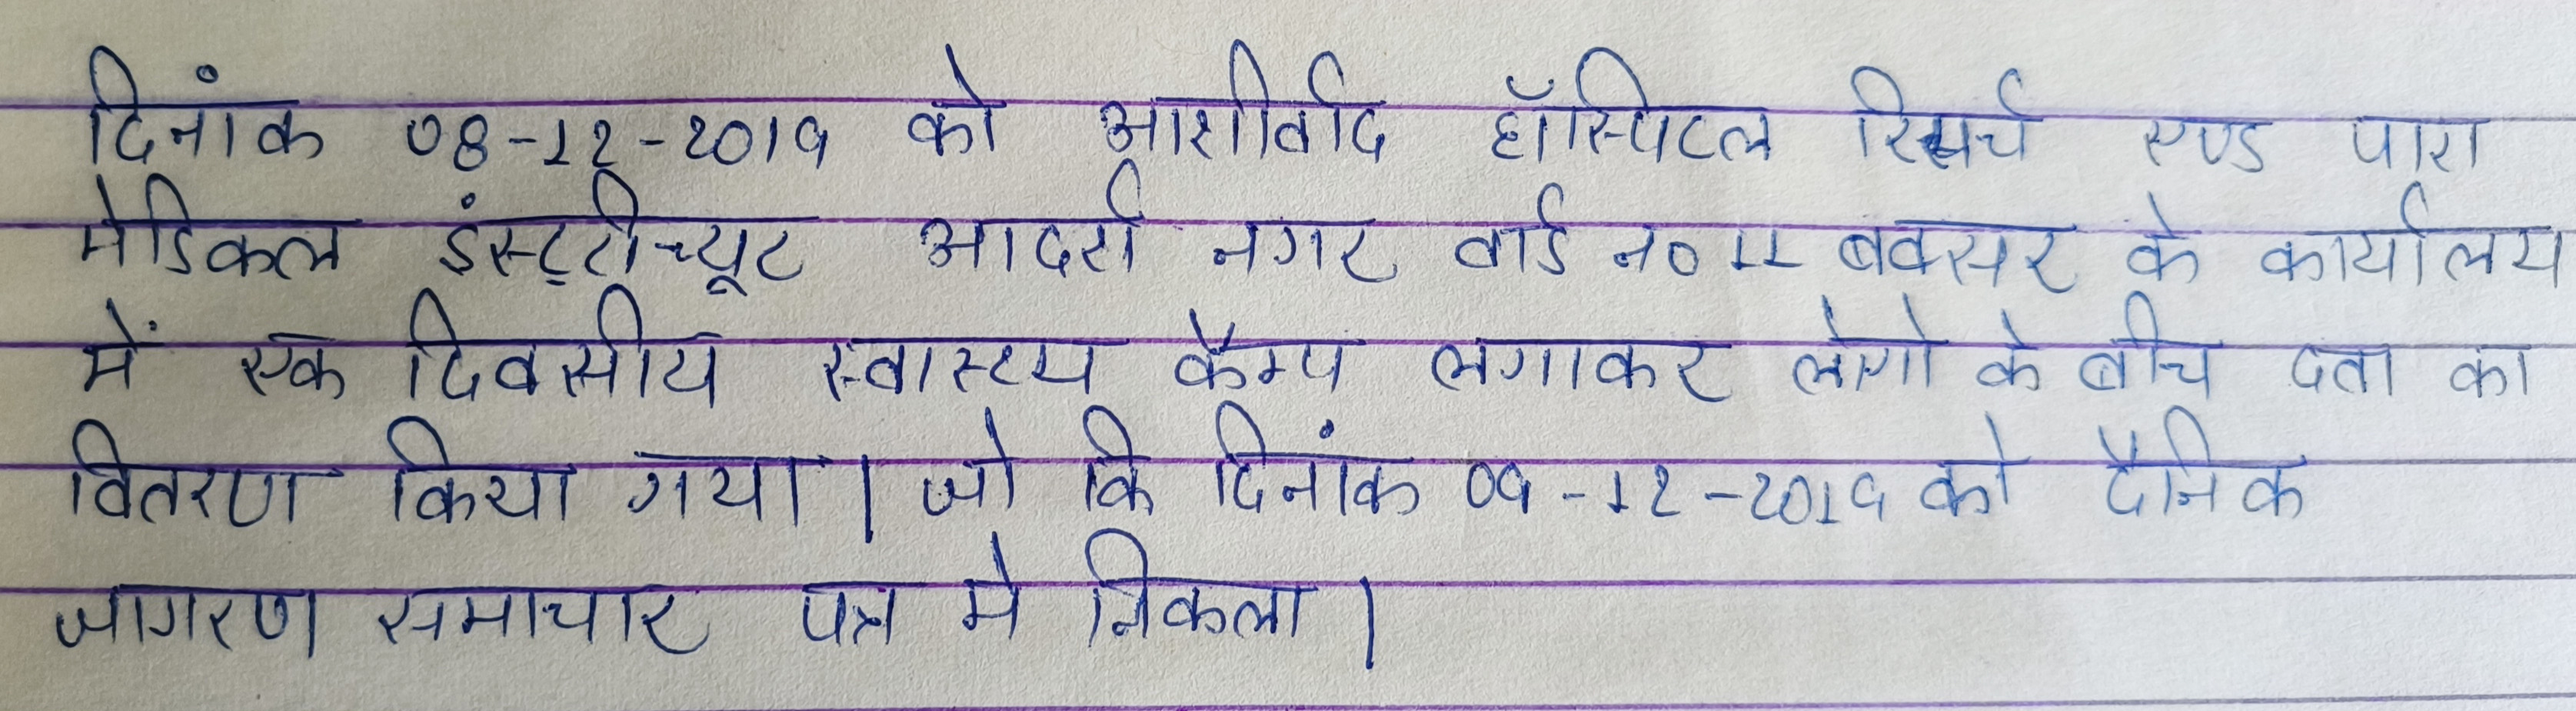 दिनांक 08-12-2019 को आशीर्वाद हॉस्पिटल रिसर्च एण्ड पारा
मेडिकल इंस्ट्टीच्यूट आदर्श नगर वार्ड न० 11 बक्सर के कार्यालय
में एक दिवसीय स्वास्थ्य कैम्प लगाकर लोगो के बीच दवा का
वितरण किया गया । जो कि दिनांक 09-12-2019 को दैनिक
जागरण समाचार पत्र मे निकला ।